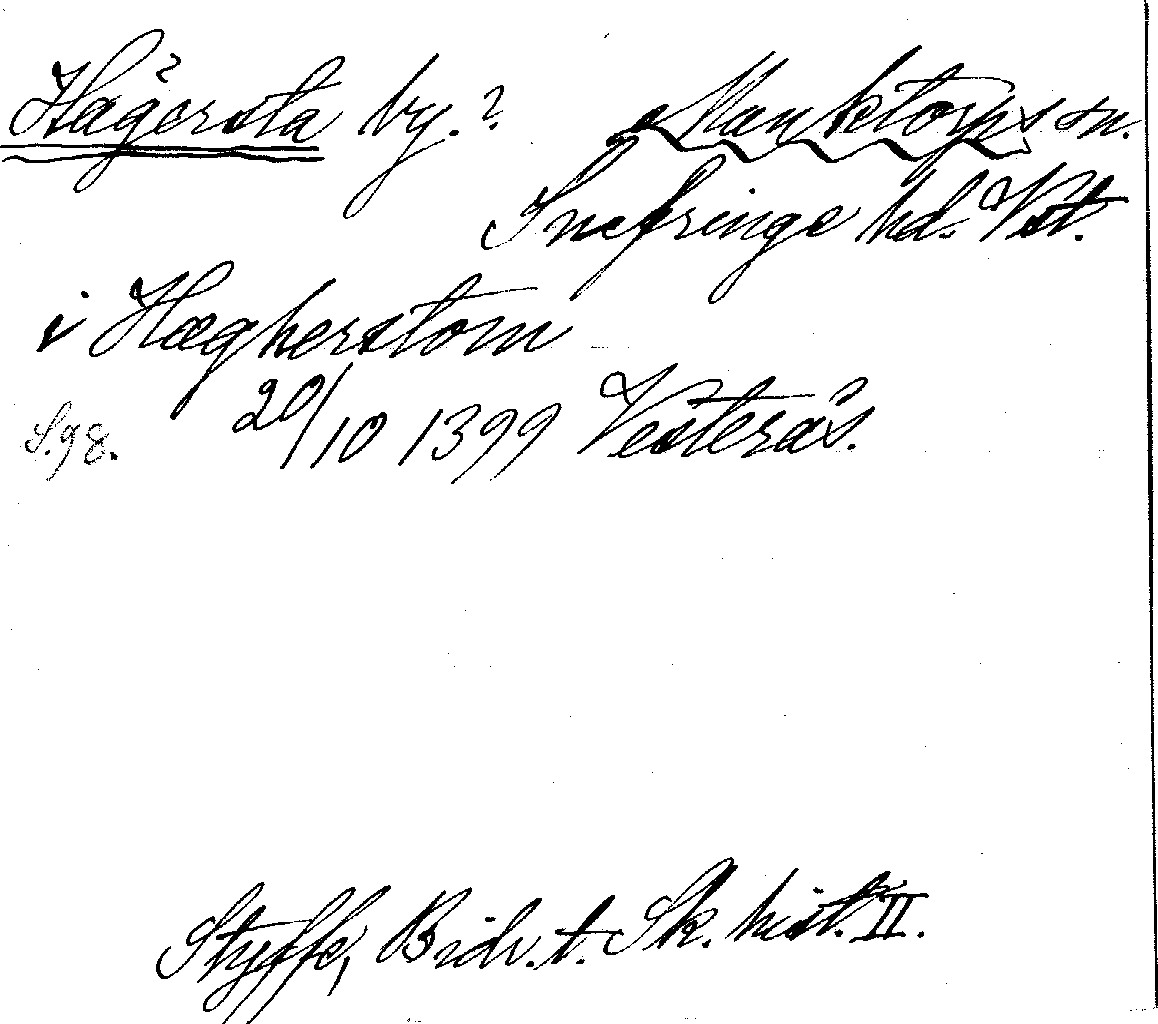 Hägersta by.? Munktorps sn.
Snefringe hd. Vst.
i Hægherstom
S. 98. 20/10 1399 Vesterås.
Styffe, Bidr. t. Sk. hist. II.